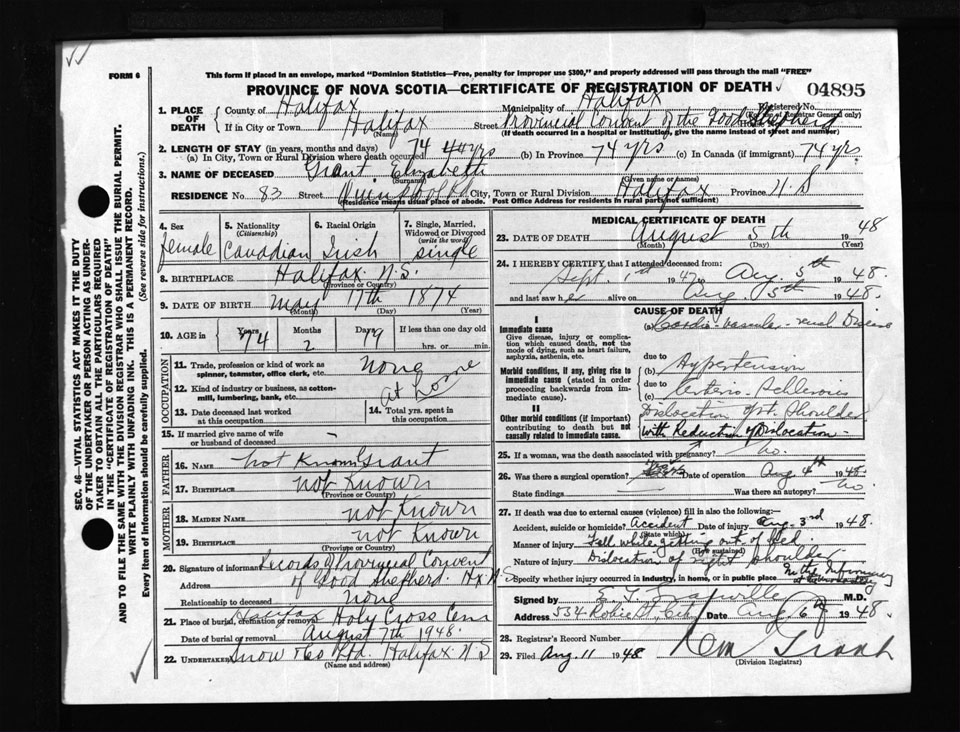 FORM 6
This form if placed in an envelope, marked "Dominion Statistics—Free, penalty for improper use $300," and properly addressed will pass through the mail "FREE"
PROVINCE OF NOVA SCOTIA—CERTIFICATE OF REGISTRATION OF DEATH
04895
SEC. 46—VITAL STATISTICS ACT MAKES IT THE DUTY OF THE UNDERTAKER OR PERSON ACTING AS UNDERTAKER TO OBTAIN ALL THE PARTICULARS REQUIRED IN THE "CERTIFICATE OF REGISTRATION OF DEATH"
AND TO FILE THE SAME WITH THE DIVISION REGISTRAR WHO SHALL ISSUE THE BURIAL PERMIT.
WRITE PLAINLY WITH UNFADING INK. THIS IS A PERMANENT RECORD.
Every item of information should be carefully supplied. (See reverse side for instructions.)
1. PLACE OF DEATH County of Halifax Municipality of Halifax Registered No.
(For use of Registrar General only)
If in City or Town Halifax Street Provincial Convent of the Good Shepherd
(Name) (If death occurred in a hospital or institution, give the name instead of street and number)
2. LENGTH OF STAY (in years, months and days)
(a) In City, Town or Rural Division where death occurred 74 yrs (b) In Province 74 yrs (c) In Canada (if immigrant) 74 yrs
3. NAME OF DECEASED Grant Elizabeth
(Surname) (Given name or names)
RESIDENCE No. 83 Street Quinpool Rd City, Town or Rural Division Halifax Province N S
(Residence means usual place of abode. Post Office Address for residents in rural parts not sufficient)
4. Sex female
5. Nationality (Citizenship) Canadian
6. Racial Origin Irish
7. Single, Married, Widowed or Divorced (write the word) single
8. BIRTHPLACE Halifax N.S.
(Province or Country)
9. DATE OF BIRTH May 17th 1874
(Month) (Day) (Year)
10. AGE in Years 74 Months 2 Days 19 If less than one day old hrs. or min.
OCCUPATION
11. Trade, profession or kind of work as spinner, teamster, office clerk, etc. none
12. Kind of industry or business, as cotton-mill, lumbering, bank, etc. at home
13. Date deceased last worked at this occupation
14. Total yrs. spent in this occupation
15. If married give name of wife or husband of deceased –
FATHER
16. NAME Not Known Grant
17. BIRTHPLACE not Known
(Province or Country)
MOTHER
18. MAIDEN NAME not Known
19. BIRTHPLACE not Known
(Province or Country)
20. Signature of informant Records Provincial Convent
Address of Good Shepherd. Hx N S
Relationship to deceased none
21. Place of burial, cremation or removal Halifax Holy Cross Cem
Date of burial or removal August 7th 1948.
22. UNDERTAKER Snow & Co Ltd. Halifax N S
(Name and address)
MEDICAL CERTIFICATE OF DEATH
23. DATE OF DEATH August 5th 1948
(Month) (Day) (Year)
24. I HEREBY CERTIFY, that I attended deceased from:
Sept. 1st 1947 to Aug. 5th 1948.
and last saw her alive on Aug 5th 1948.
CAUSE OF DEATH
I
Immediate cause
Give disease, injury or complication which caused death, not the mode of dying, such as heart failure, asphyxia, asthenia, etc.
(a) Cardio-vascular-renal Disease
due to
Morbid conditions, if any, giving rise to immediate cause (stated in order proceeding backwards from immediate cause).
(b) Hypertension
due to
(c) Arterio-Sclerosis
II
Other morbid conditions (if important) contributing to death but not causally related to immediate cause.
Dislocation of rt. Shoulder
with Reduction of Dislocation –
25. If a woman, was the death associated with pregnancy? no.
26. Was there a surgical operation? Date of operation Aug 4th 1948.
State findings — Was there an autopsy? no
27. If death was due to external causes (violence) fill in also the following:—
Accident, suicide or homicide? Accident Date of injury Aug. 3rd 1948.
(State which)
Manner of injury Fell while getting out of bed.
(How sustained)
Nature of injury Dislocation of right shoulder
Specify whether injury occurred in industry, in home, or in public place In the Infirmary
Signed by M.D.
534 Robie St., City Date Aug 6th 1948.
28. Registrar's Record Number
29. Filed Aug. 11 1948
(Division Registrar)